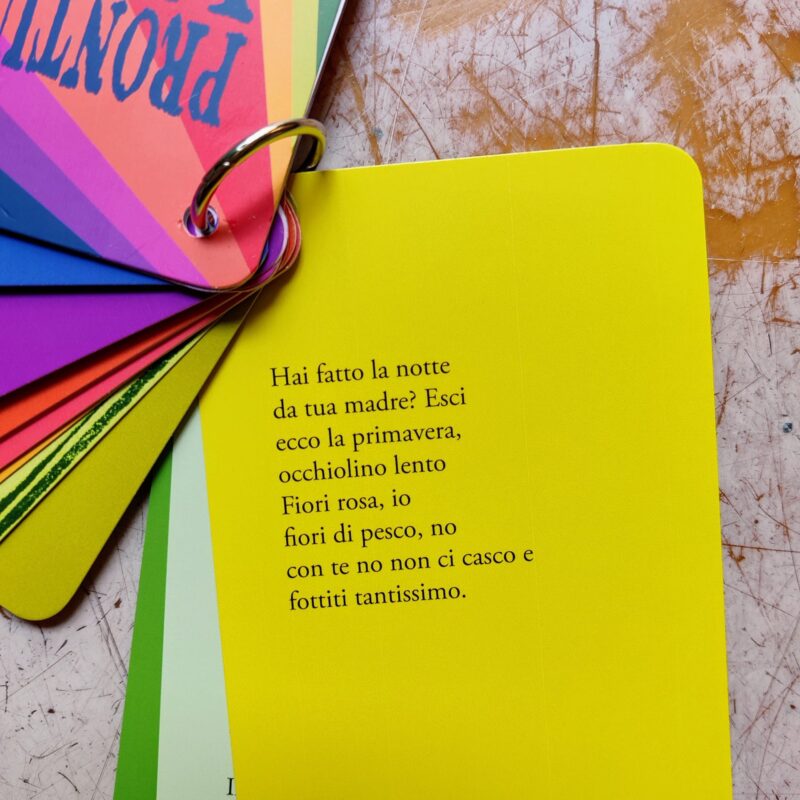 PRONTU
Hai fatto la notte
da tua madre? Esci
ecco la primavera,
occhiolino lento
Fiori rosa, io
fiori di pesco, no
con te no non ci casco e
fottiti tantissimo.